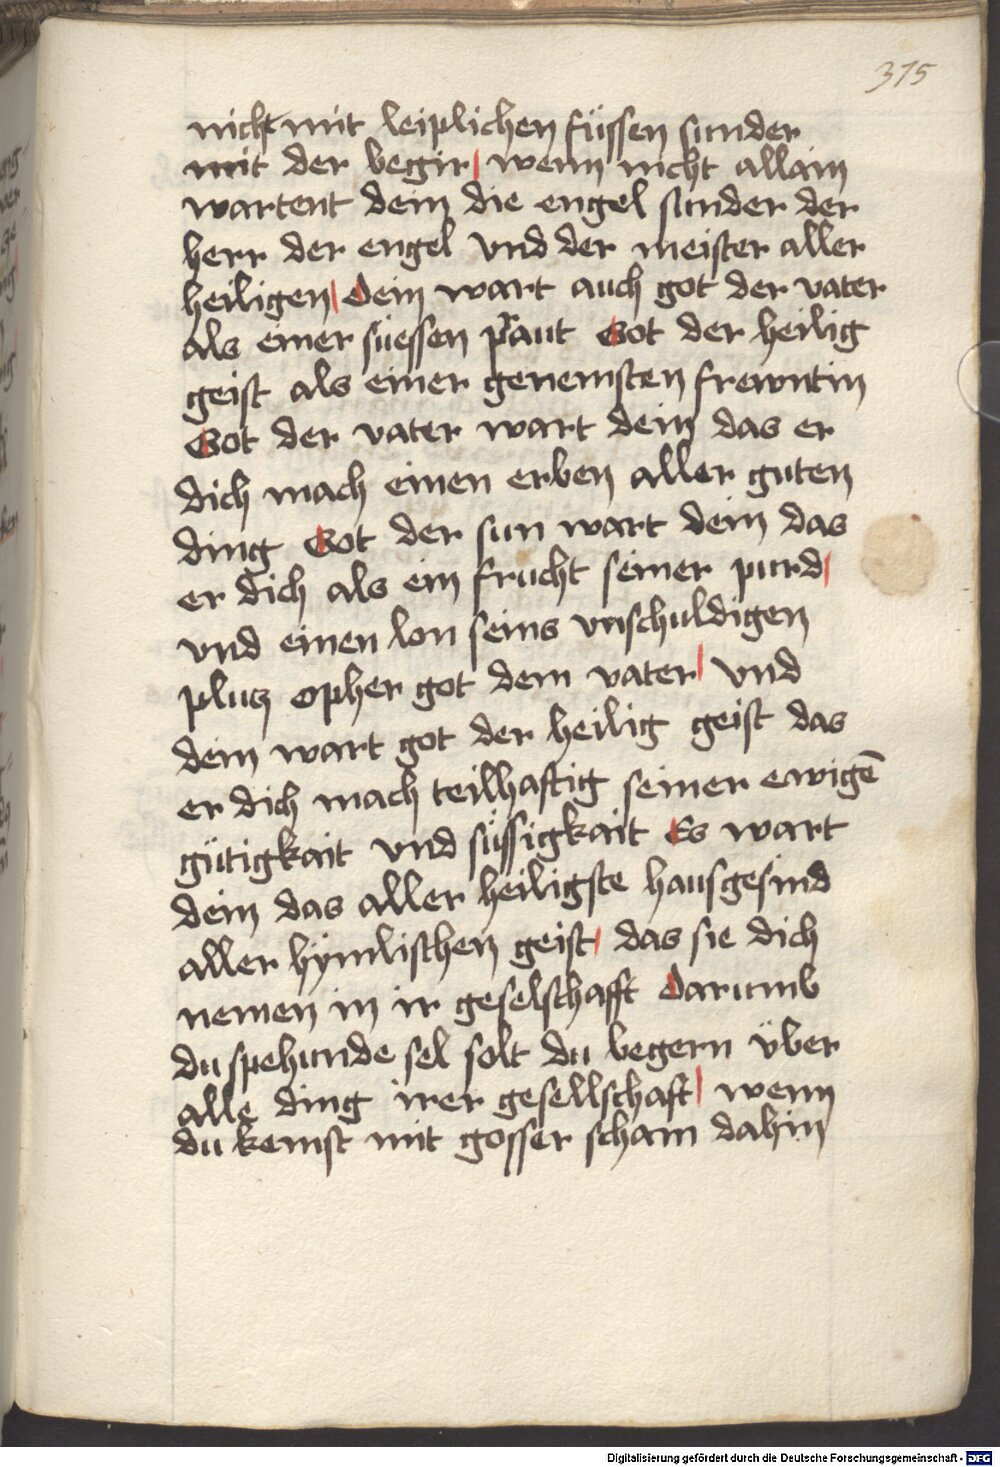 315
nicht mit leiplichen füssen sunder
mit der begir | wenn nicht allain
wartent dein die engel sunder der
herr der engel vnd der meister aller
heiligen | Dein wart auch got der vater
als einer süessen praut Got der heilig
geist als einer genemsten frewntin
Got der vater wart dein das er
dich mach einen erben aller guten
ding Got der sun wart dein das
er dich als ein frucht seiner purd |
vnd einen lon seins vnschuldigen
plutz opher got dem vater | vnd
dein wart got der heilig geist das
er dich mach teilhaftig seiner ewigē
gütigkait vnd süssigkait Es wart
dein das aller heiligste hausgesind
aller hymlischen geist | das sie dich
nemen in ir geselschafft Darumb
du spehunde sel solt du begern über
alle ding irer gesellschaft | wenn
du kemst mit gosser scham dahin
Digitalisierung gefördert durch die Deutsche Forschungsgemeinschaft - DFG